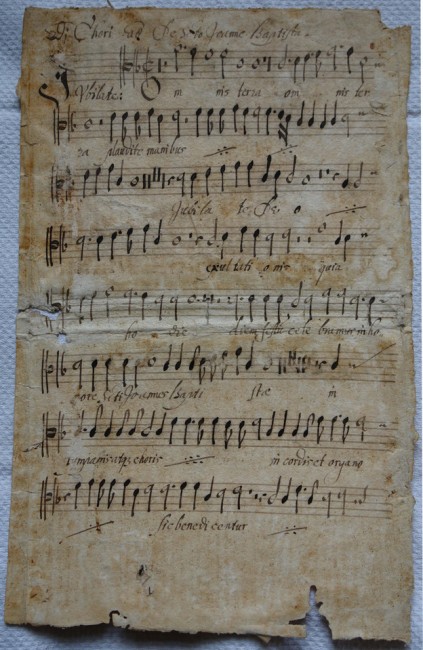 Chori De Sto Joanne Baptista.
Jubilate: Omnis terra om nis ter
ra plaudite manibus
Jubila te De o
exultati onis quia
ho die diem festu cele bramus in ho
nore Sti Joannes Bapti stæ in
tympanis et choris in cordis et organo
sic benedicentur